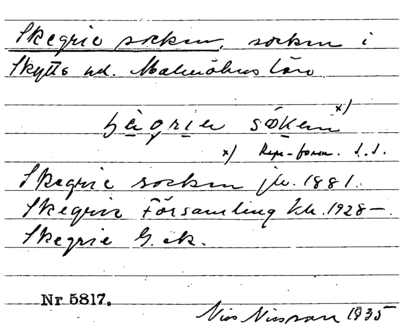 Skegrie socken, socken i
Skytts hd. Malmöhus län
sägrier søken x)
x) Repr-form. I.I.
Skegrie socken jb. 1881.
Skegrie Församling kh. 1928–.
Skegrie G. ek.
Nr 5817.
Nils Nilsson 1935